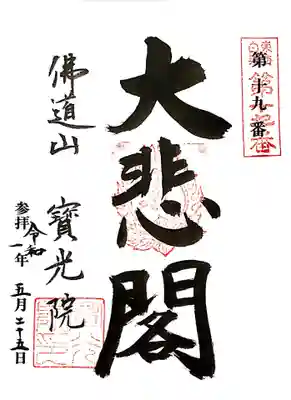 第十九番
大悲閣
佛道山
寶光院
参拝
令和一年 五月二十五日